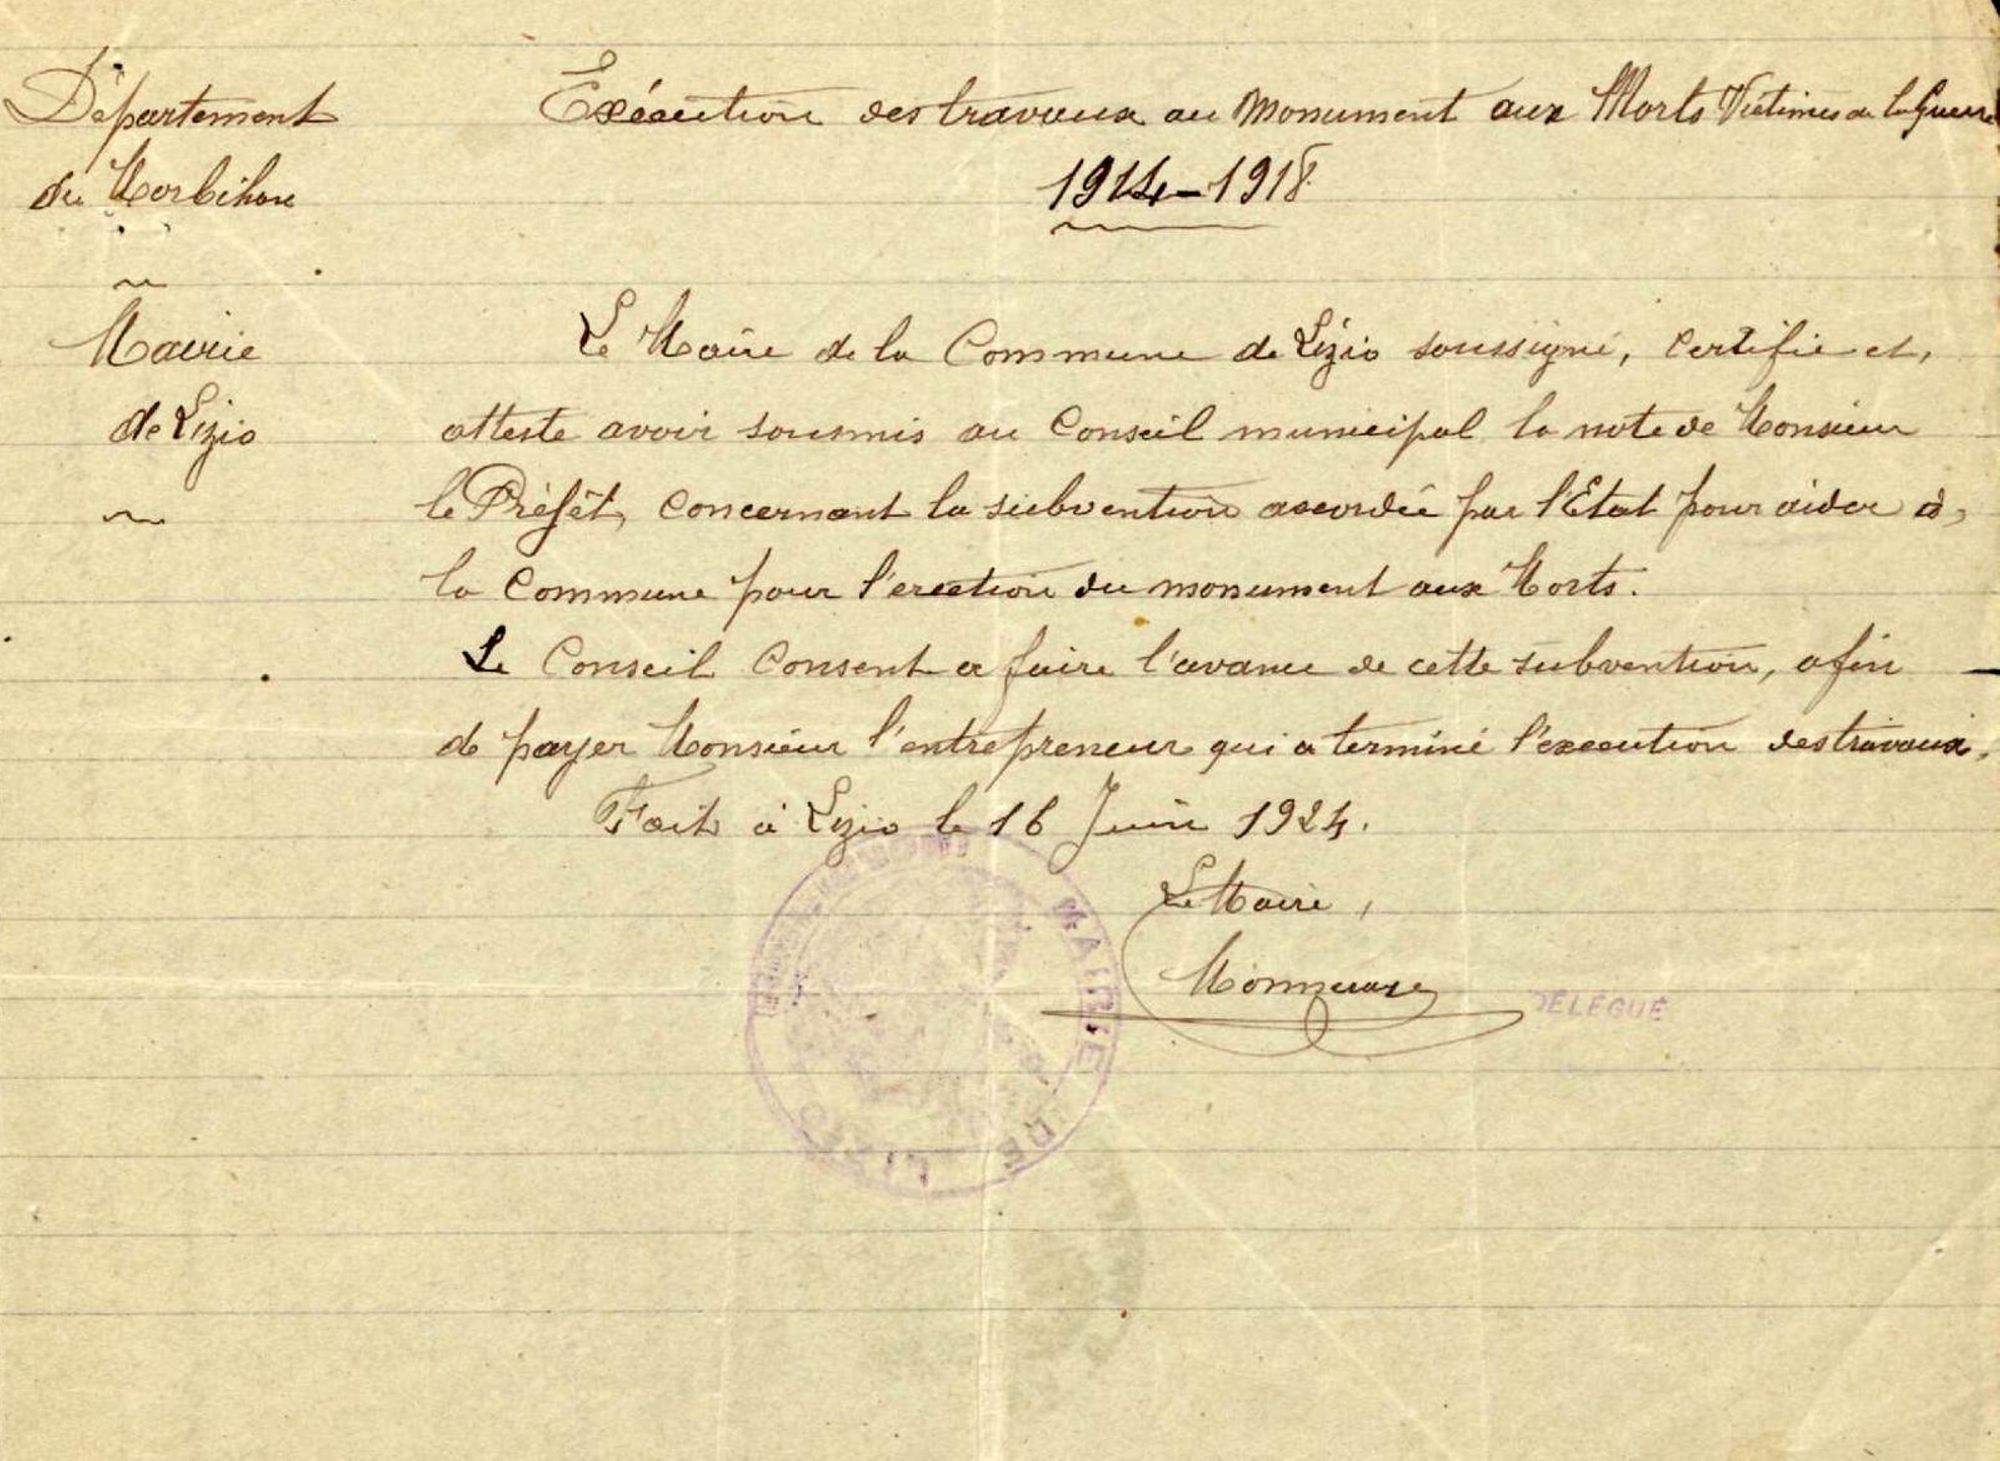 Département
du Morbihan
Mairie
de Lizio
Exécution des travaux au Monument aux Morts Victimes de la Guerre
1914-1918
Le Maire de la Commune de Lizio soussigné, certifie et,
atteste avoir soumis au Conseil municipal la note de Monsieur
le Préfêt, concernant la subvention accordée par l'Etat pour aider à,
la Commune pour l'erection du monument aux Morts.
Le Conseil Consent a faire l'avance de cette subvention, afin
de payer Monsieur l'entrepreneur qui a terminé l'execution des travaux.
Fait à Lizio le 16 Juin 1924.
Le Maire,
DÉLÉGUÉ
MAIRIE DE LIZIO